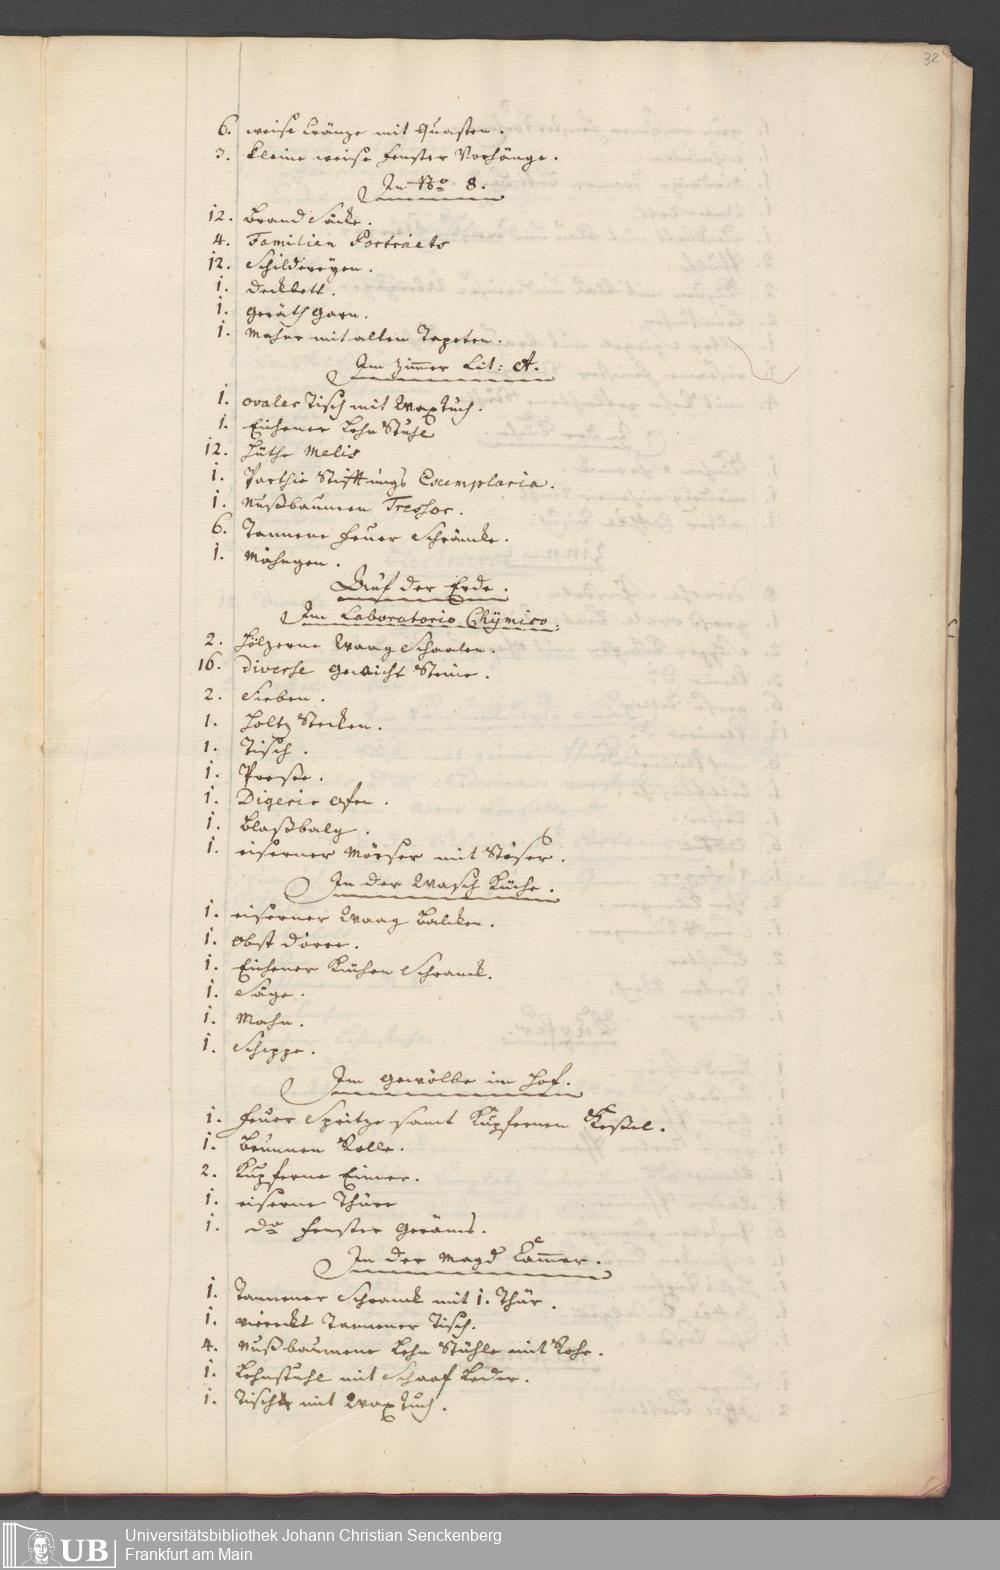 32
6. weise Kränze mit Quasten.
3. kleine weise Fenster Vorhänge.
In No 8.
12. Brand Säcke.
4. Familien Portraits
12. Schildereyen.
1. Deckbett.
1. Geräth Garn.
1. Mahne mit alten Tapeten.
Im Zim̅er Lit: A.
1. ovaler Tisch mit Wax Tuch.
1. Eichener Lehn Stuhl
12. Hüthe Melis
1. Parthie Stifftungs Exemplaria.
1. Nußbaumen Treshor.
6. Tannene Feuer Schräncke.
1. Mähngen.
Auf der Erde.
Im Laboratorio Chÿmico.
2. Höltzerne Waag Schaalen.
16. Diverse Gewicht Steine.
2. Sieben.
1. Holtz Stecken.
1. Tisch.
1. Presse.
1. Digerir Ofen.
1. Blaßbalg.
1. eiserner Mörser mit Stöser.
In der Wasch Küche.
1. eiserner Waag Balcken.
1. Obst Dörre.
1. Eichener Küchen Schranck.
1. Säge.
1. Mahn.
1. Schippe.
Im Gewölbe im Hof.
1. Feuer Spritze samt Kupfernen Keßel.
1. Brunnen Rolle.
2. Kupferne Eimer.
1. eiserne Thüre
1. do Fenster Geräms.
In der Magd Kam̅er.
1. Tannener Schranck mit 1. Thür.
1. viereckt Tannener Tisch.
4. Nußbaumene Lehn Stühle mit Rohr.
1. Lehnstuhl mit Schaaf Leder.
1. Tisch mit Wax Tuch.
UB
Universitätsbibliothek Johann Christian Senckenberg
Frankfurt am Main